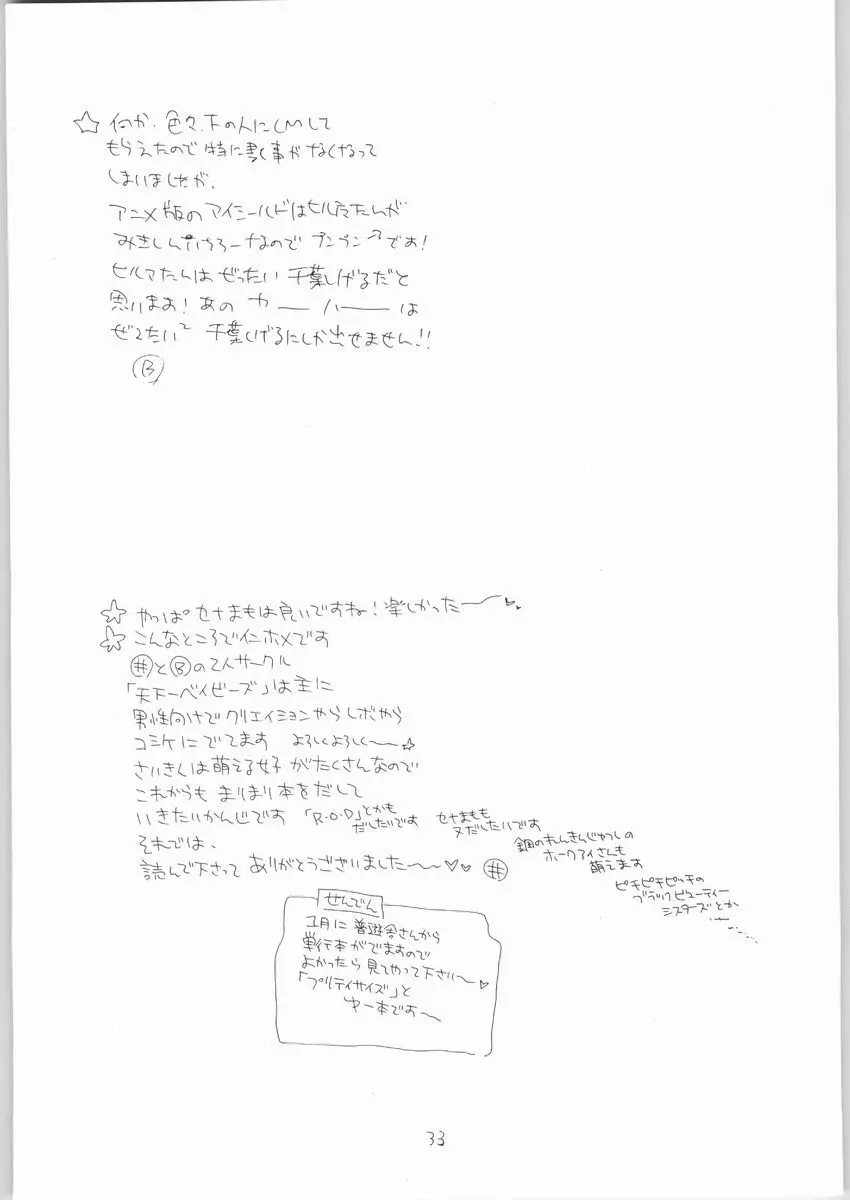 ☆ 何か、色々、下の人にCMして
もらえたので特に書く事がなくなって
しまいましたが、
アニメ版のアイシールドはヒルマたんが
みきしんいちろーなのでプンプンです!
ヒルマたんはぜったい千葉しげるだと
思います!あのカーハーは
ぜったい² 千葉しげるにしか出せません!!
Ⓑ
☆ やっぱセナまもは良いですね!楽しかったー
☆ こんなところでインホメです
井とⒷの2人サークル
「天下一ベイビーズ」は主に
男性向けでクリエイションやらレボやら
コミケにでてます よろしくよろしく〜☆
さいきんは萌える女子がたくさんなので
これからも まりまり本をだして
いきたいかんじです 「R.O.D」とかも
だしたいです
セナまもも
又だしたいです
鋼のれんきんじゅつしの
ホークアイさんも
萌えます
ピチピチピッチの
ブラックビューティー
シスターズとか
それでは、
読んで下さって ありがとうございました〜〜♡♡ 井
せんでん
1月に 普遊舎さんから
単行本がでますので
よかったら見てやって下さい〜♡
「プリティサイズ」と
ゆー本です〜
33